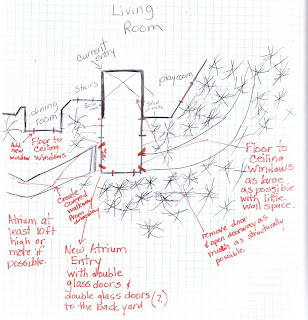 Living
Room
current
entry
Stairs
playroom
dining
room
Add
new
window
Floor to
Ceiling
Windows
Create
curved
walkway
from
driveway
Floor to
Ceiling
Windows
as large
as possible
with little
wall space.
Atrium at
least 10ft
high or
more if
possible.
remove door
& open doorway as
much as structurally
possible.
New Atrium
Entry
with double
glass doors &
double glass doors (?)
to the back yard